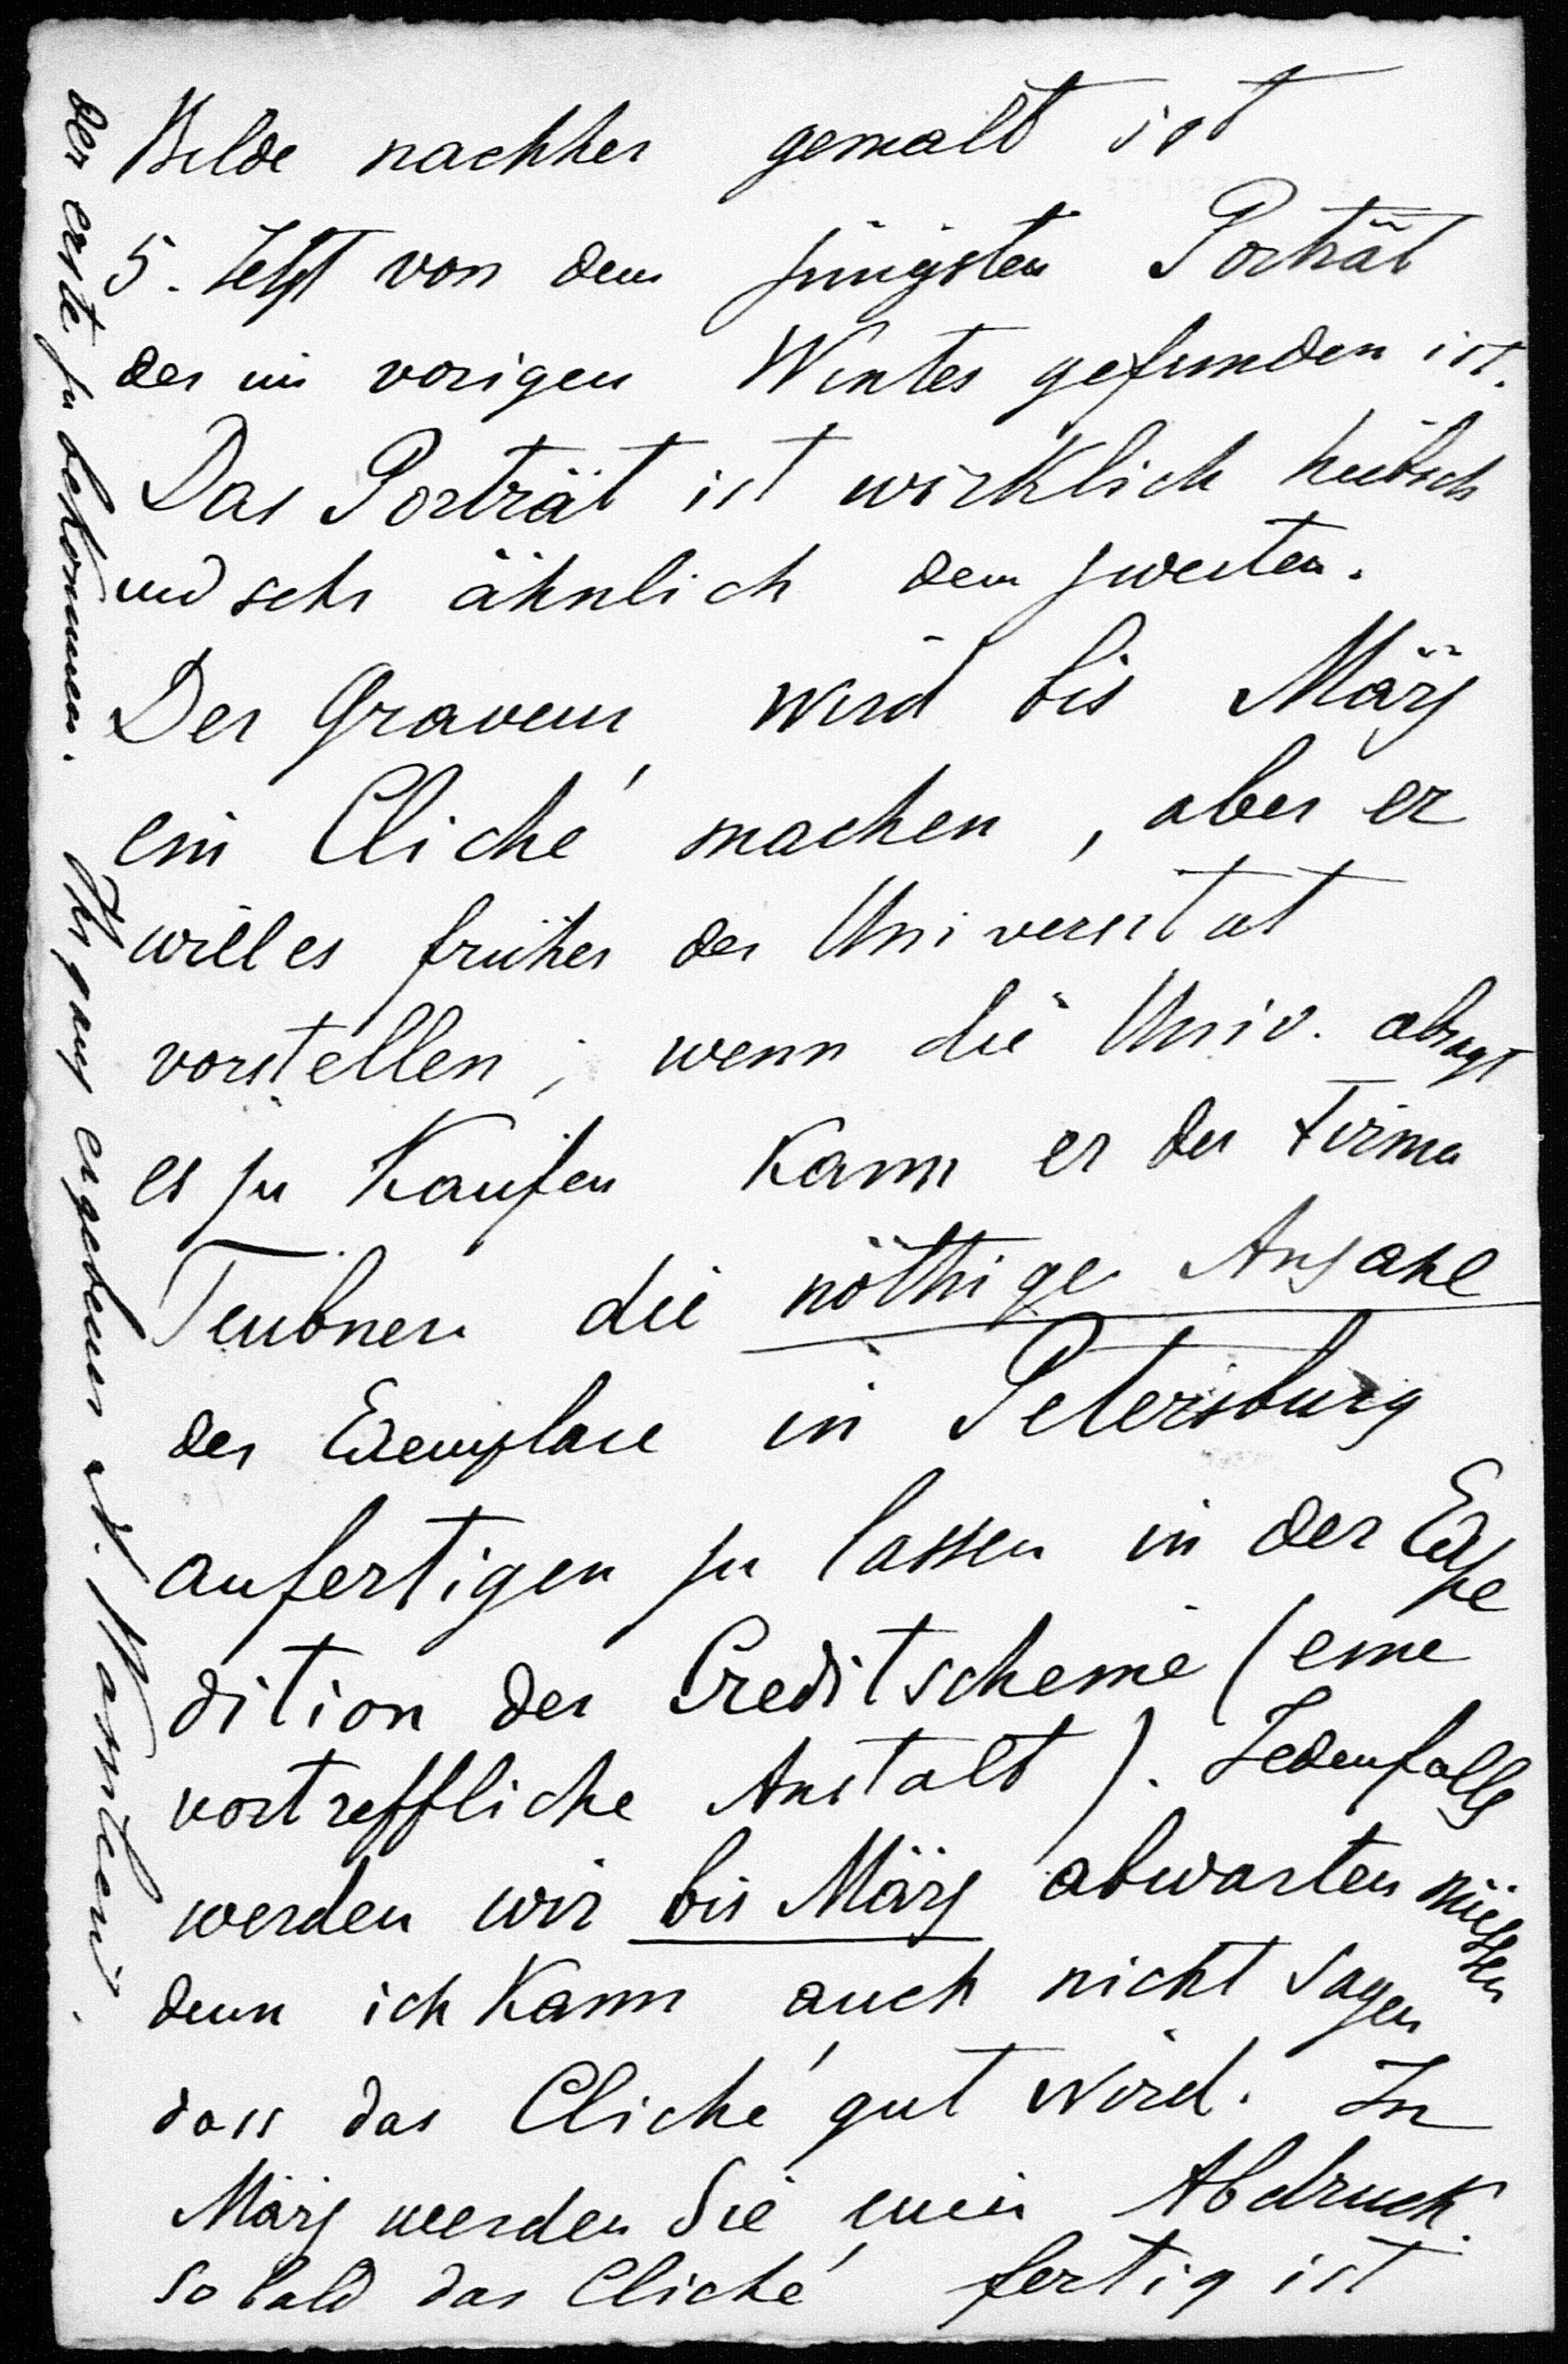 Bilde nachher gemalt ist
5. Jetzt von dem jüngsten Porträt
der im vorigen Winter gefunden ist.
Das Porträt ist wirklich hübsch
und sehr ähnlich dem zweiten.
Der Graveur wird bis März
ein Cliché machen, aber er
will es früher der Universitat
vorstellen; wenn die Univ. absagt
es zu Kaufen Kann er der Firma
Teubner die nöthige Anzahl
der Exemplare in Petersburg
anfertigen zu lassen in der Expe
dition der Creditscheine (eine
vortreffliche Anstalt). Jedenfalls
werden wir bis März abwarten müssen
denn ich Kann auch nicht sagen
dass das Cliché gut wird. In
März werden Sie einen Abdruck
so bald das Cliché fertig ist
der erste zu bekommen. Ihr ganz ergebener